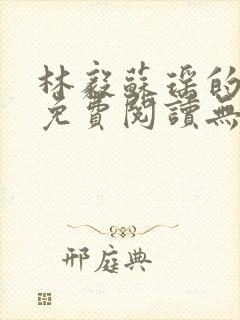 林毅蘇瑶的
免費閱讀無
邢庭典